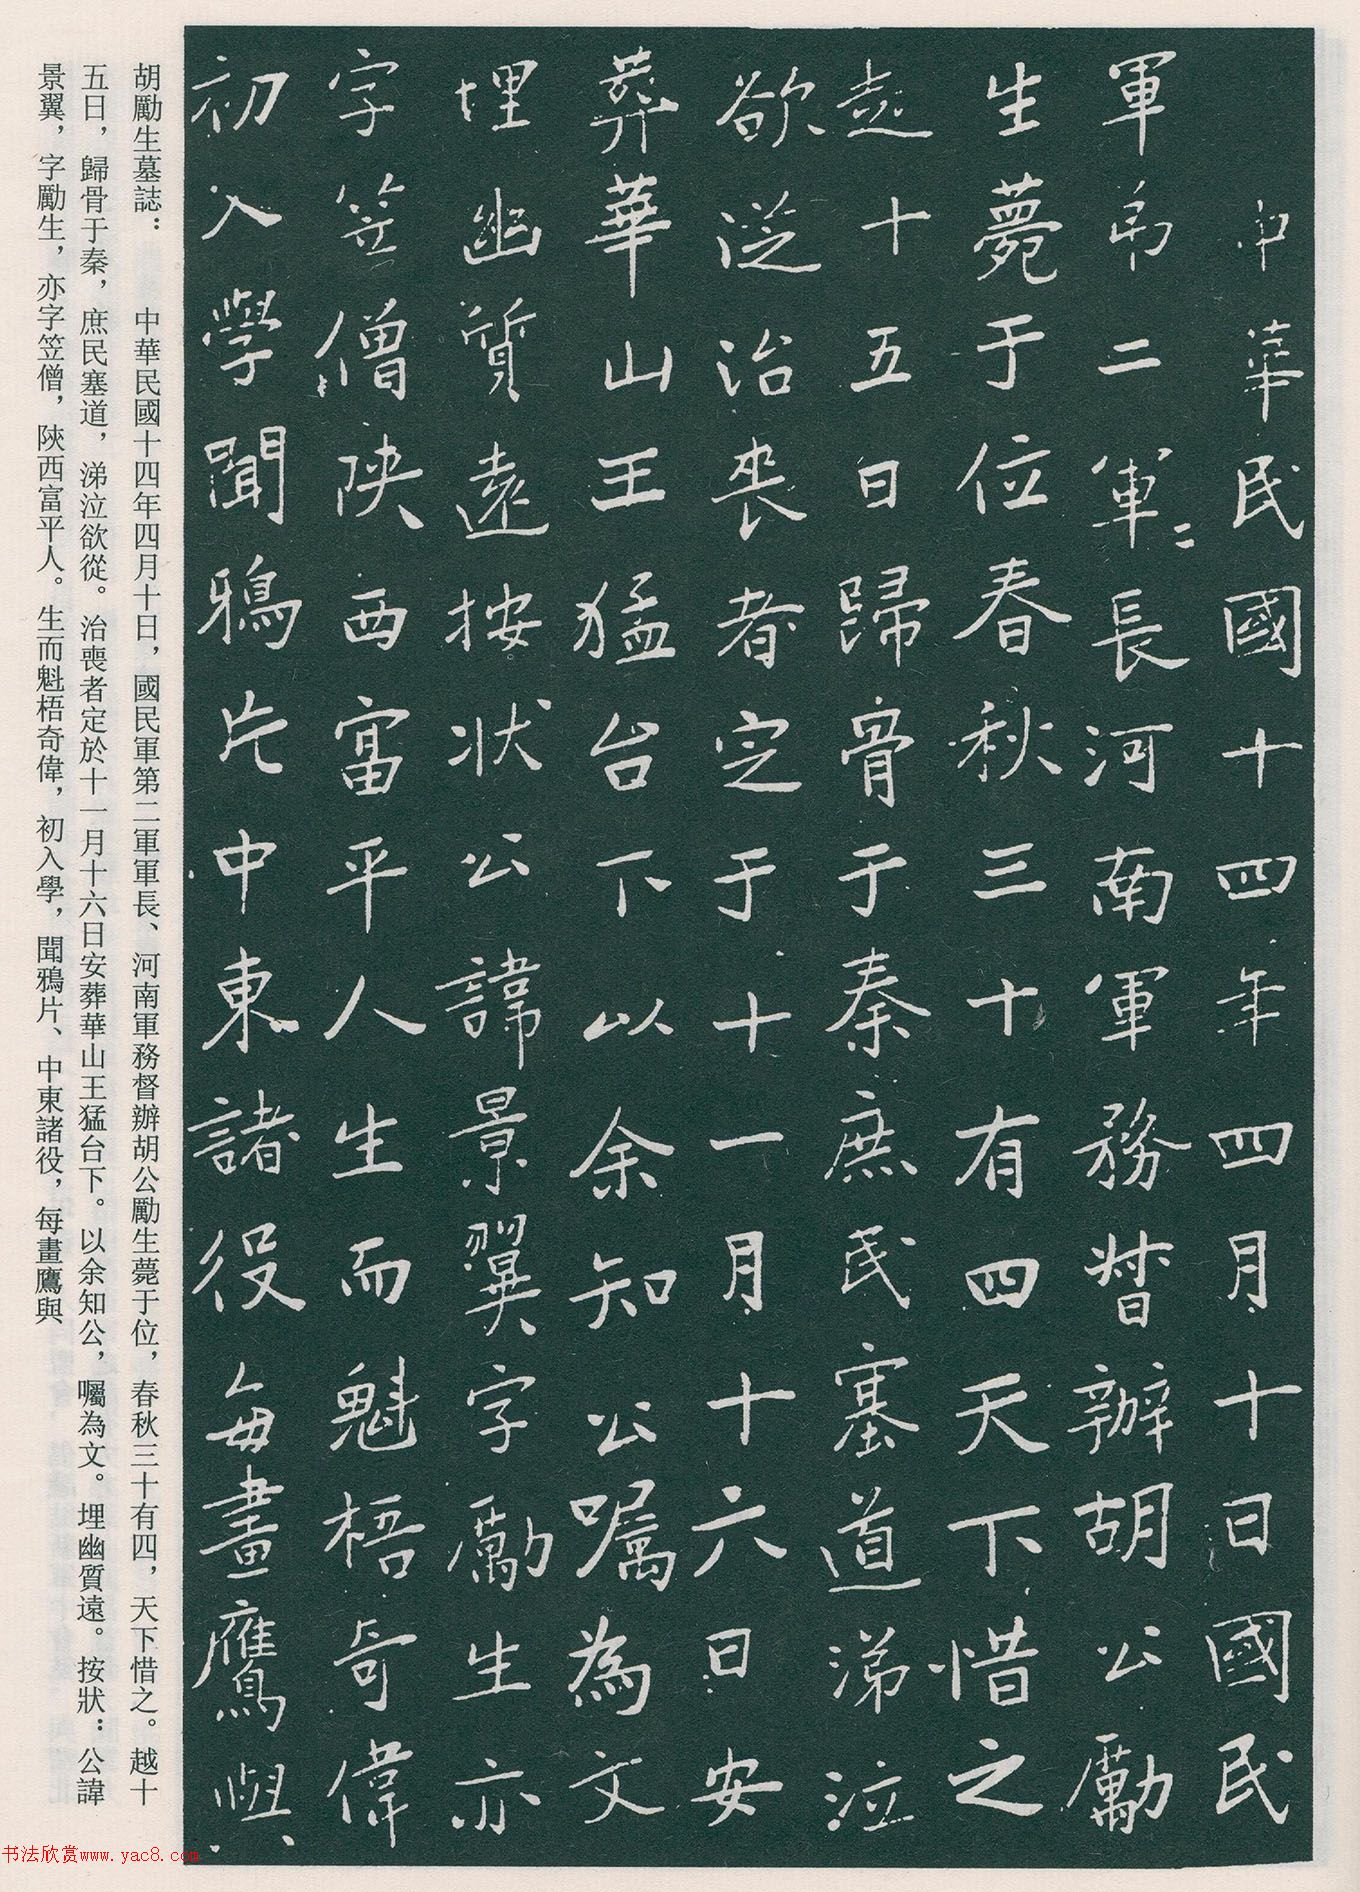 中華民國十四年四月十日國民
軍弟二軍二長河南軍務督辦胡公勵
生薨于位春秋三十有四天下惜之
越十五日歸骨于秦庶民塞道涕泣
欲從治喪者定于十一月十六日安
葬華山王猛台下以余知公嘱為文
埋幽質遠按状公諱景翼字勵生亦
字笠僧陕西富平人生而魁梧奇偉
初入學聞鴉片中東諸役每畫鷹與
胡勵生墓誌：　中華民國十四年四月十日，國民軍第二軍軍長、河南軍務督辦胡公勵生薨于位，春秋三十有四，天下惜之。越十
五日，歸骨于秦，庶民塞道，涕泣欲從。治喪者定於十一月十六日安葬華山王猛台下。以余知公，囑為文。埋幽質遠。按狀：公諱
景翼，字勵生，亦字笠僧，陝西富平人。生而魁梧奇偉，初入學，聞鴉片、中東諸役，每畫鷹與
书法欣赏www.yac8.com